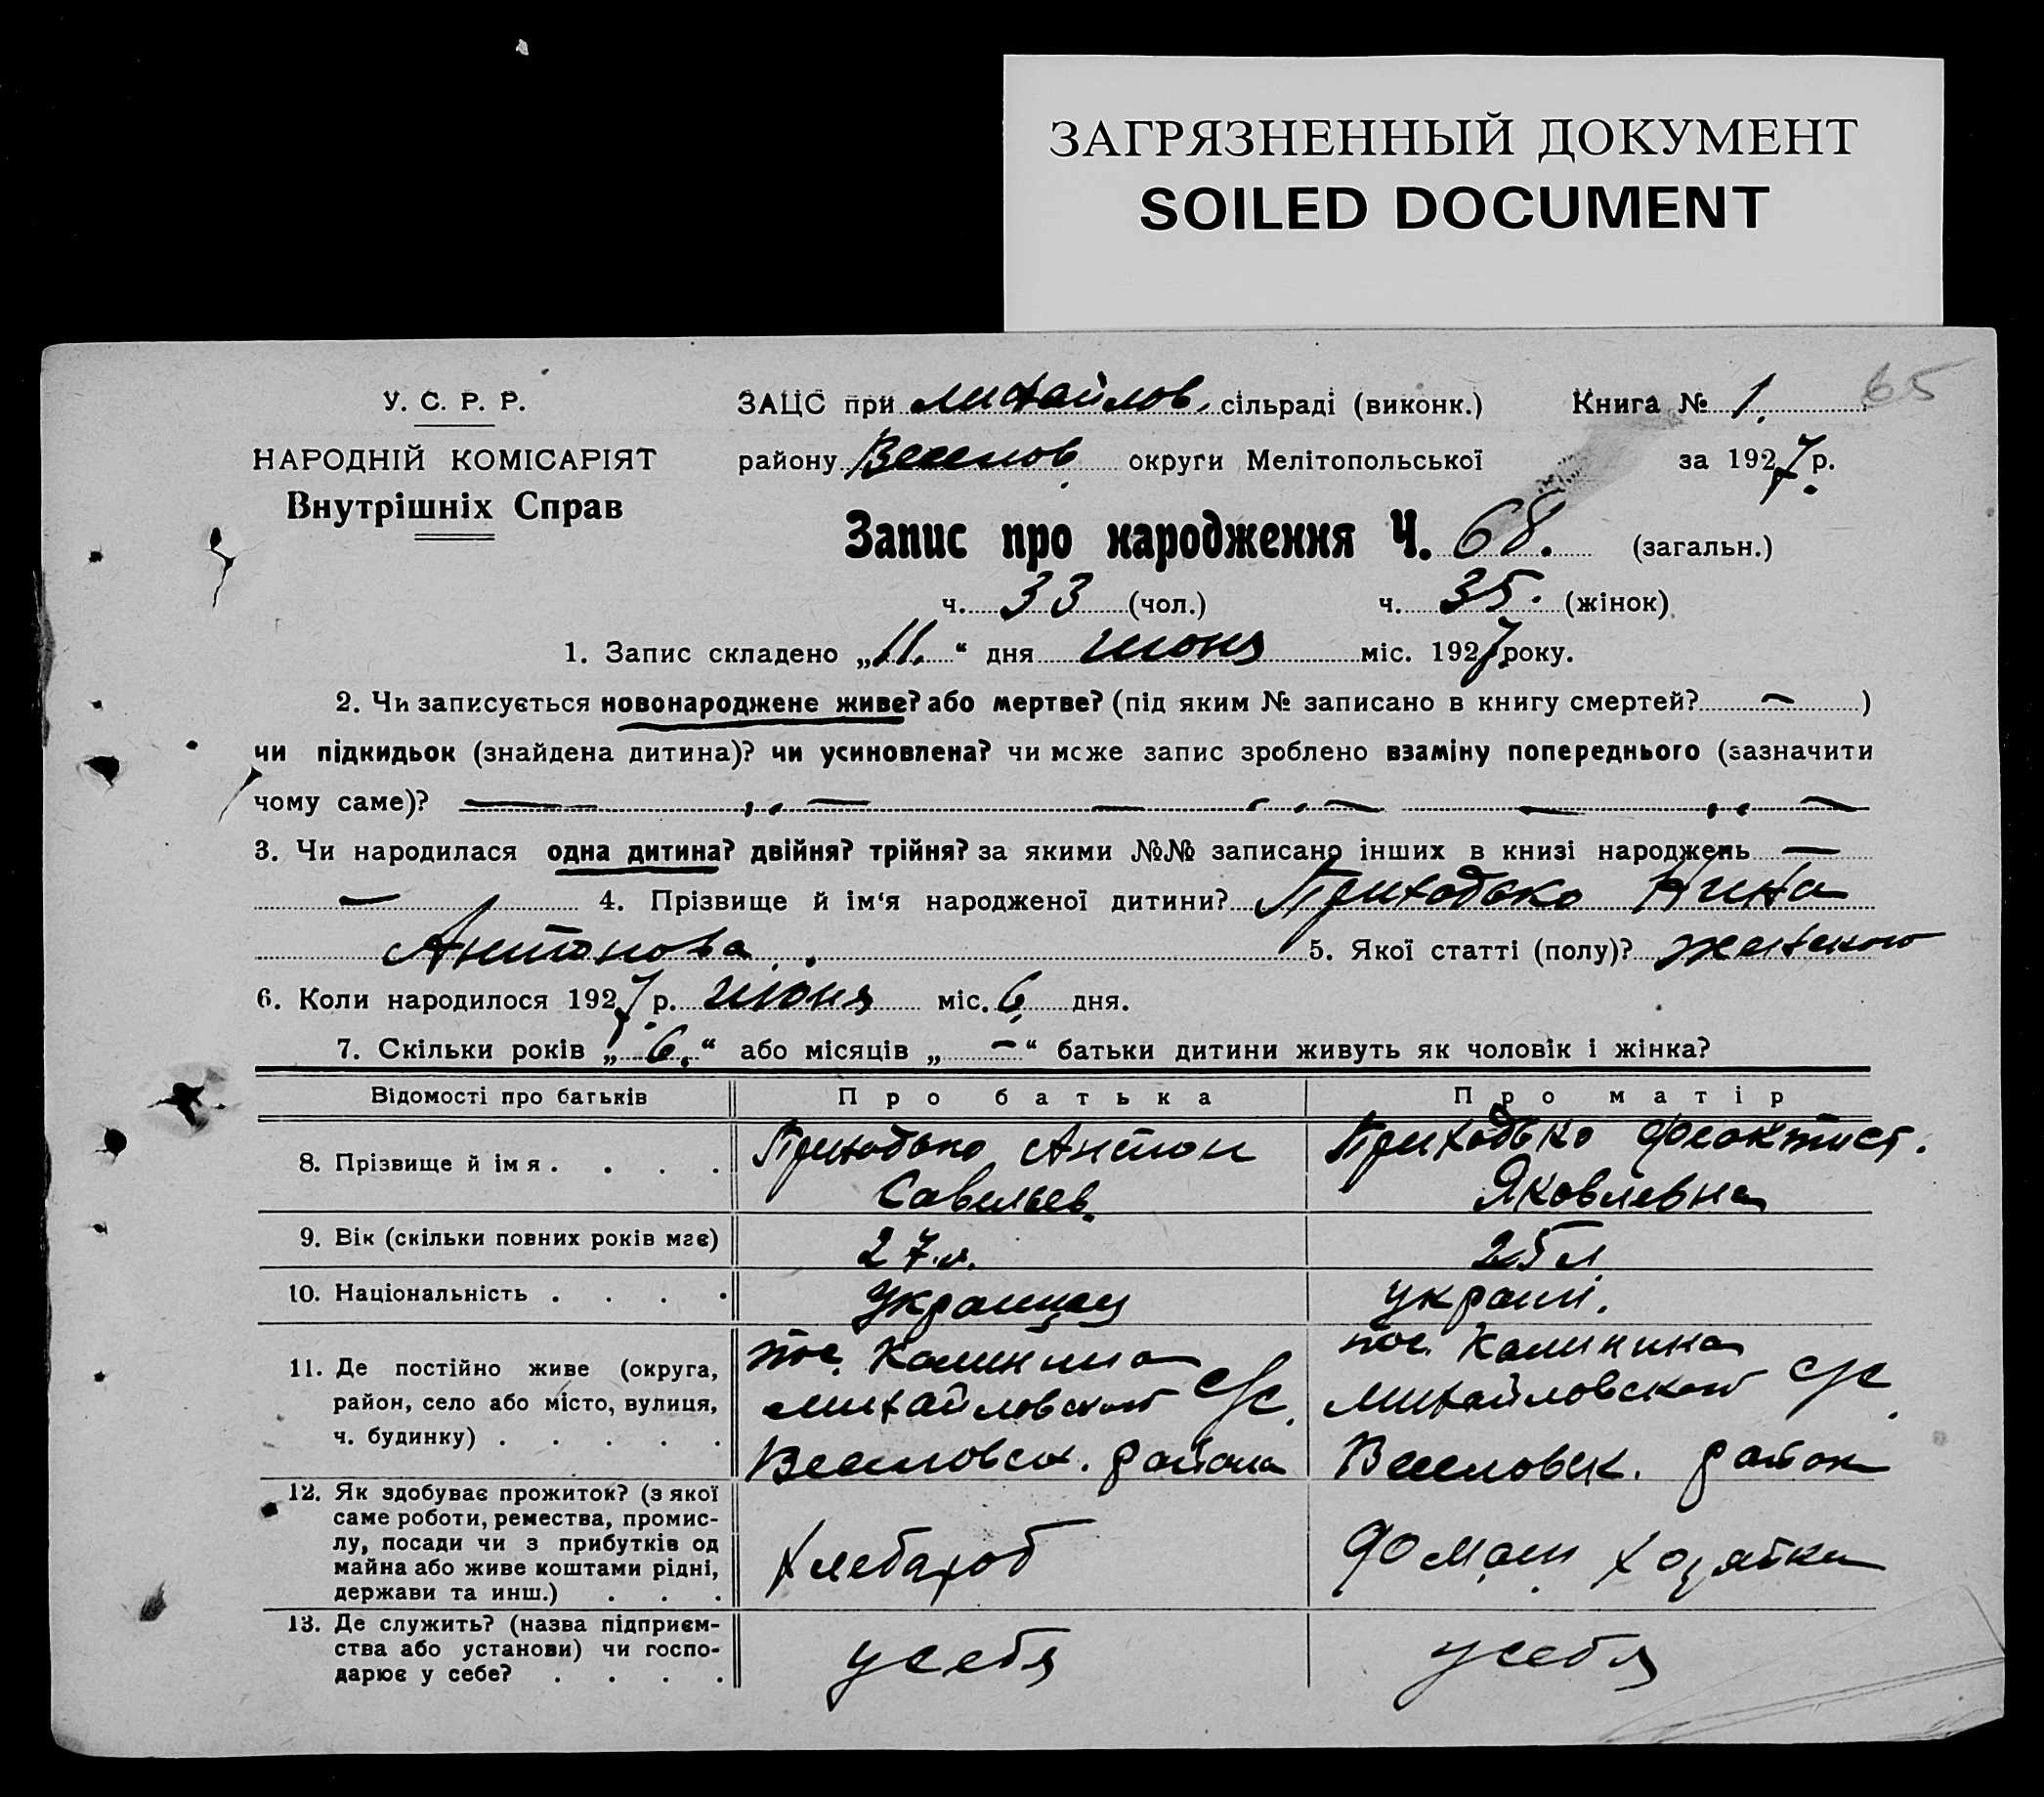 ЗАГРЯЗНЕННЫЙ ДОКУМЕНТ
SOILED DOCUMENT
65
У. С. Р. Р.
НАРОДНІЙ КОМІСАРІЯТ
Внутрішніх Справ
ЗАЦС при Михайлов. сільраді (виконк.) Книга № 1.
району Веселов. округи Мелітопольської за 1927 р.
Запис про народження Ч. 68. (загальн.)
ч. 33 (чол.) ч. 35. (жінок)
1. Запис складено „11.“ дня июня міс. 1927 року.
2. Чи записується новонароджене живе? або мертве? (під яким № записано в книгу смертей? — )
чи підкидьок (знайдена дитина)? чи усиновлена? чи може запис зроблено взаміну попереднього (зазначити
чому саме)? — „ — — „ — — „ —
3. Чи народилася одна дитина? двійня? трійня? за якими №№ записано інших в книзі народжень —
— 4. Прізвище й ім‘я народженої дитини? Приходько Нина
Антонова. 5. Якої статті (полу)? женского
6. Коли народилося 1927 р. июня міс. 6 дня.
7. Скільки років „6.“ або місяців „—“ батьки дитини живуть як чоловік і жінка?
Відомості про батьків Про батька Про матір
8. Прізвище й імя . . . . Приходько Антон Приходько Феоктист.
Савельев. Яковлевна
9. Вік (скільки повних років має) 27 л. 25 л
10. Національність . . . . Украинец украин.
11. Де постійно живе (округа, пос. Калинина пос. Калинина
район, село або місто, вулиця, Михайловского с/с. Михайловского с/с.
ч. будинку) . . . . . Веселовск. района Веселовск. район
12. Як здобуває прожиток? (з якої
саме роботи, ремества, промис-
лу, посади чи з прибутків од
майна або живе коштами рідні,
держави та инш.) . . . Хлебароб Домаш хозяйка
13. Де служить? (назва підприєм-
ства або установи) чи госпо-
дарює у себе? . . . . у себя у себя